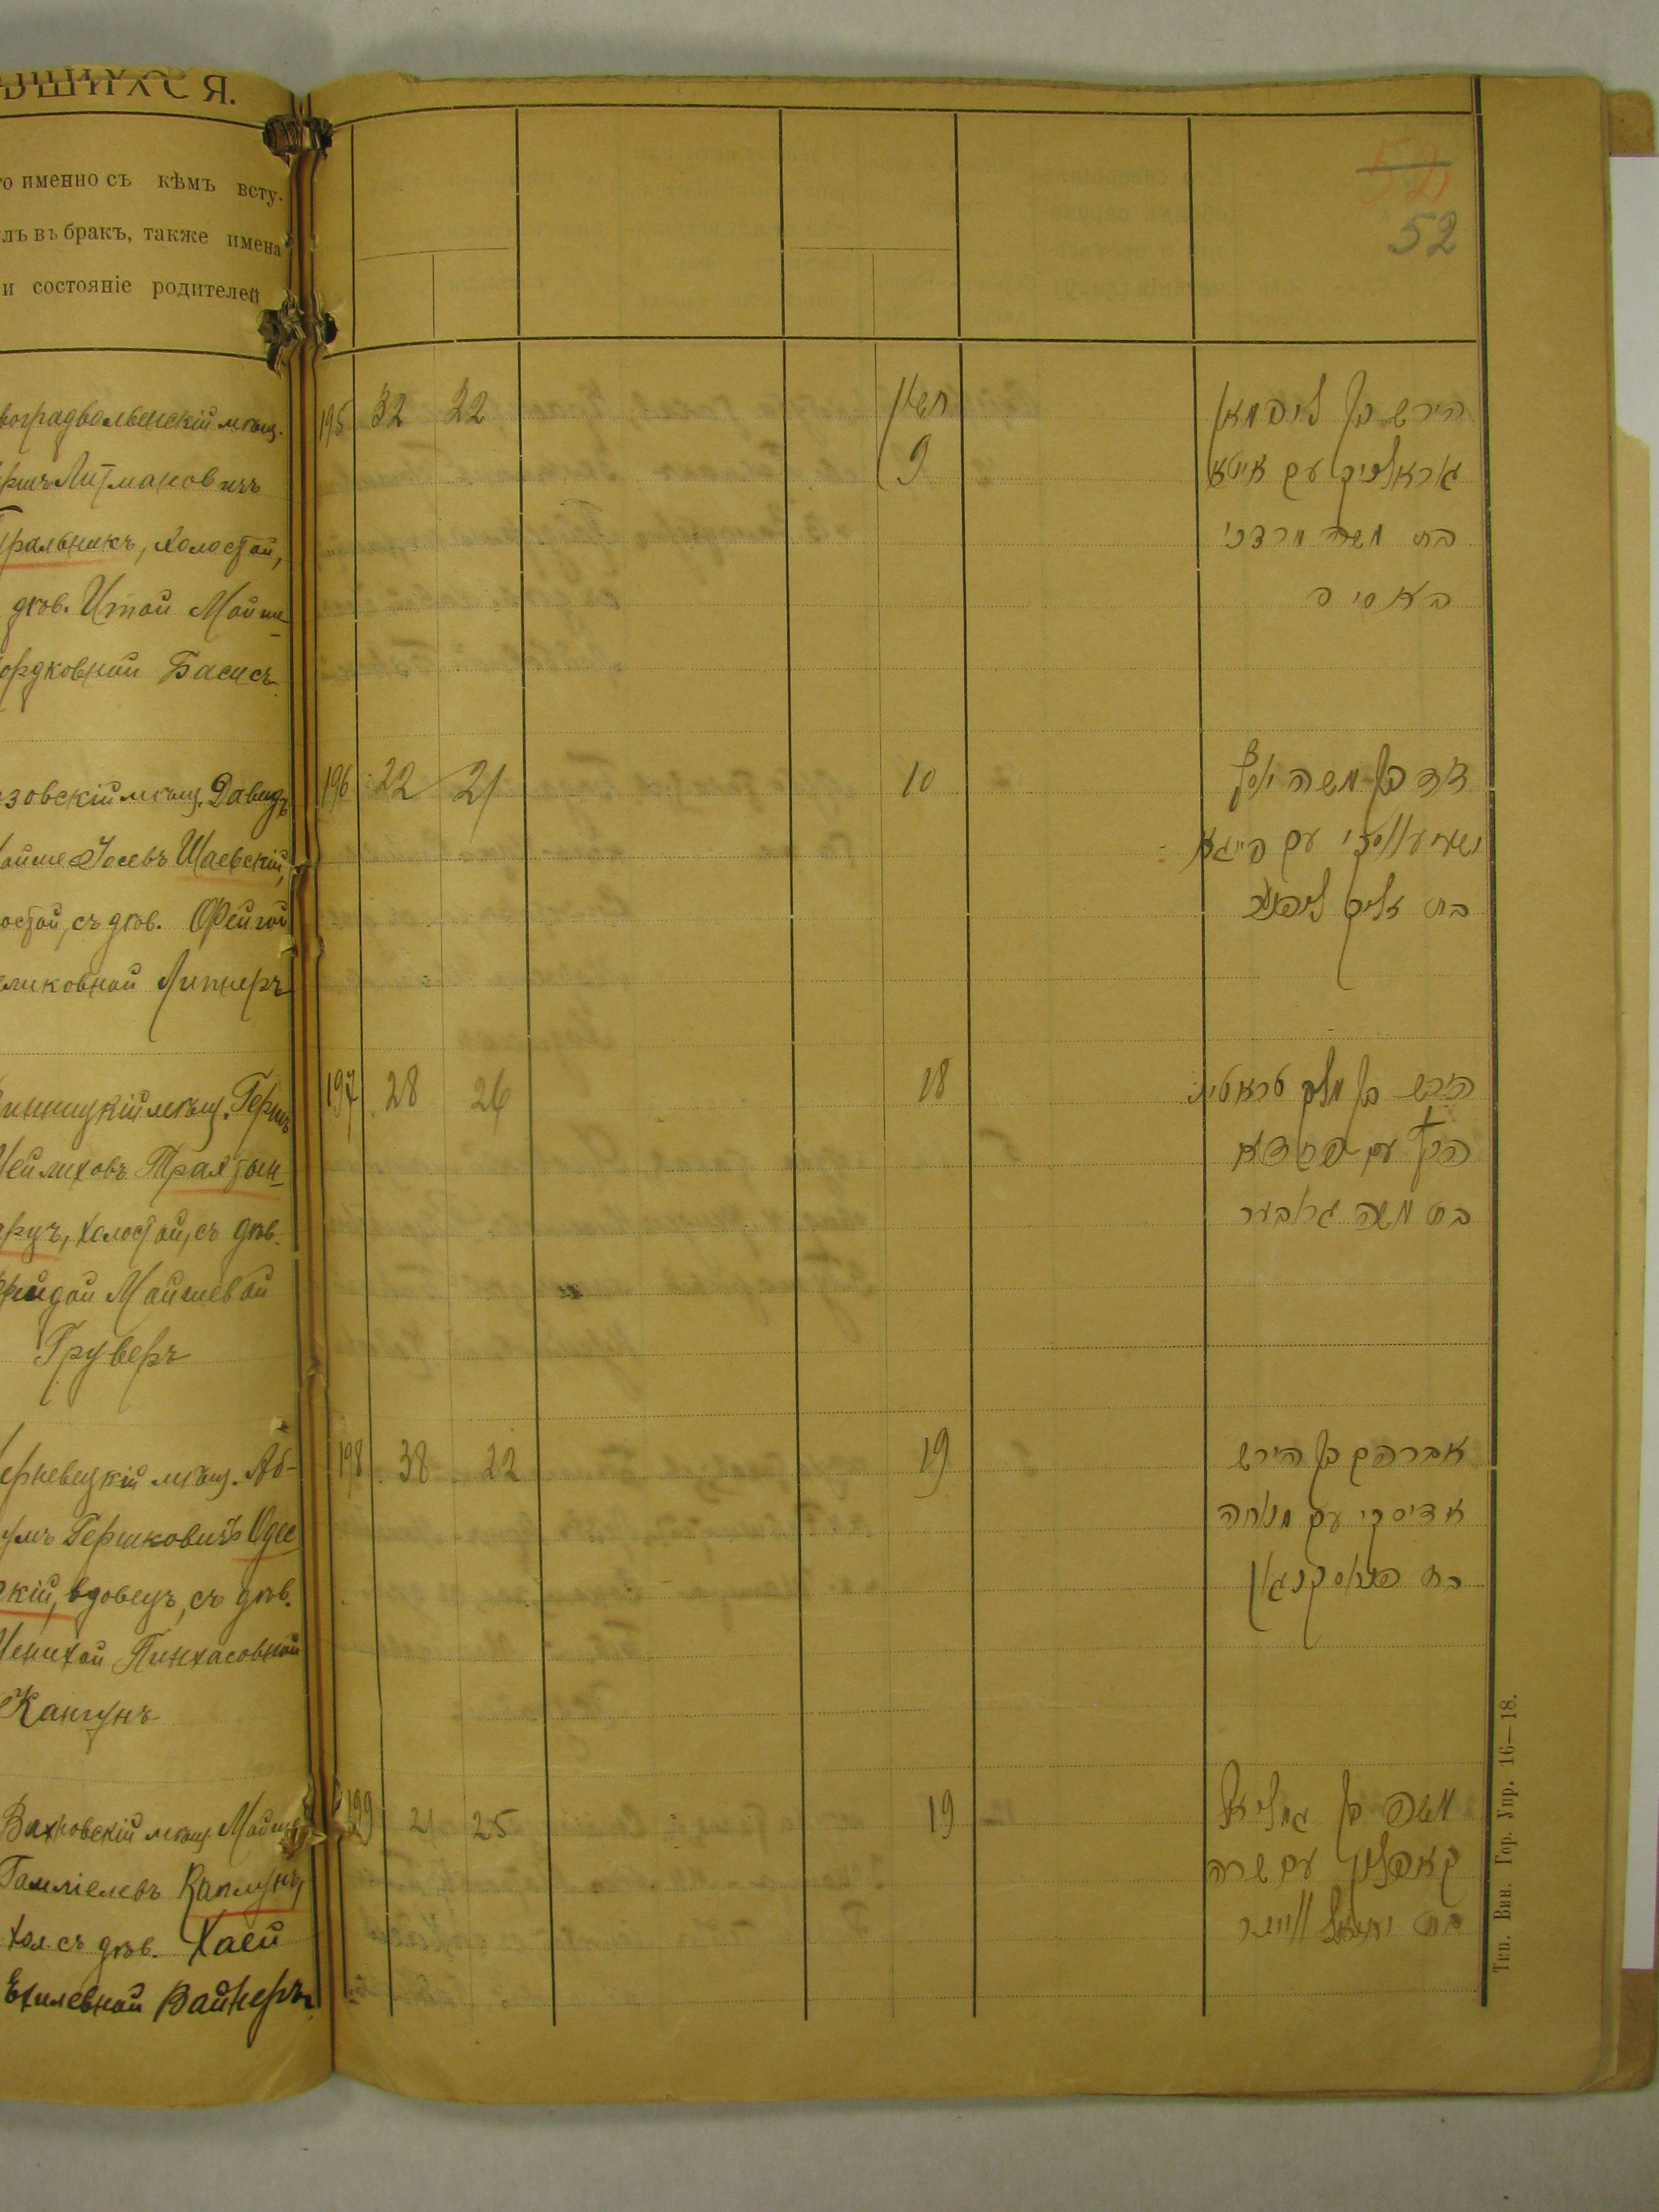 ВШИХСЯ.
го именно съ кѣмъ всту.
лъ въ бракъ, также имена
и состояніе родителей
52
52
воградволынскій мѣщ.
ршъ Литмановичъ
Гральникъ, холостой,
дѣв. Итой Мойше
ордковной Басисъ
195 32 22
חשון
9
הירש בן ליפמאן
גראלניק עם איטא
בת משה מרדכי
באסיס
зовскій мѣщ. Давидъ
ойше Іосевъ Шаевскій,
остой, съ дѣв. Фейгой
еликовной Липнеръ
196 22 21
10
דוד בן משה יוסף
עם פייגא
בת זעליק
инницкій мѣщ. Гершъ
Мейлиховъ Трахтен
ерцъ, холостой, съ дѣв.
Фридой Мойшевой
Груверъ
197 28 26
18
הירש בן מלך
עם פרידא
בת משה גרובער
ерневецкій мѣщ. Аб-
умъ Гершковичъ Одес
скій, вдовецъ, съ дѣв.
Менихой Пинхасовной
Кангунъ
198 38 22
19
אברהם בן הירש
אדיסקי עם מנוחה
בת
Вахновскій мѣщ. Мойше
Гамліелевъ Каплунъ
хол. съ дѣв. Хаей
Ехилевной Вайнеръ
199 21 25
19
משה בן גמליאל
קאפלון עם שרה
בת יחיאל ווײנר
Тип. Вин. Гор. Упр. 16—18.